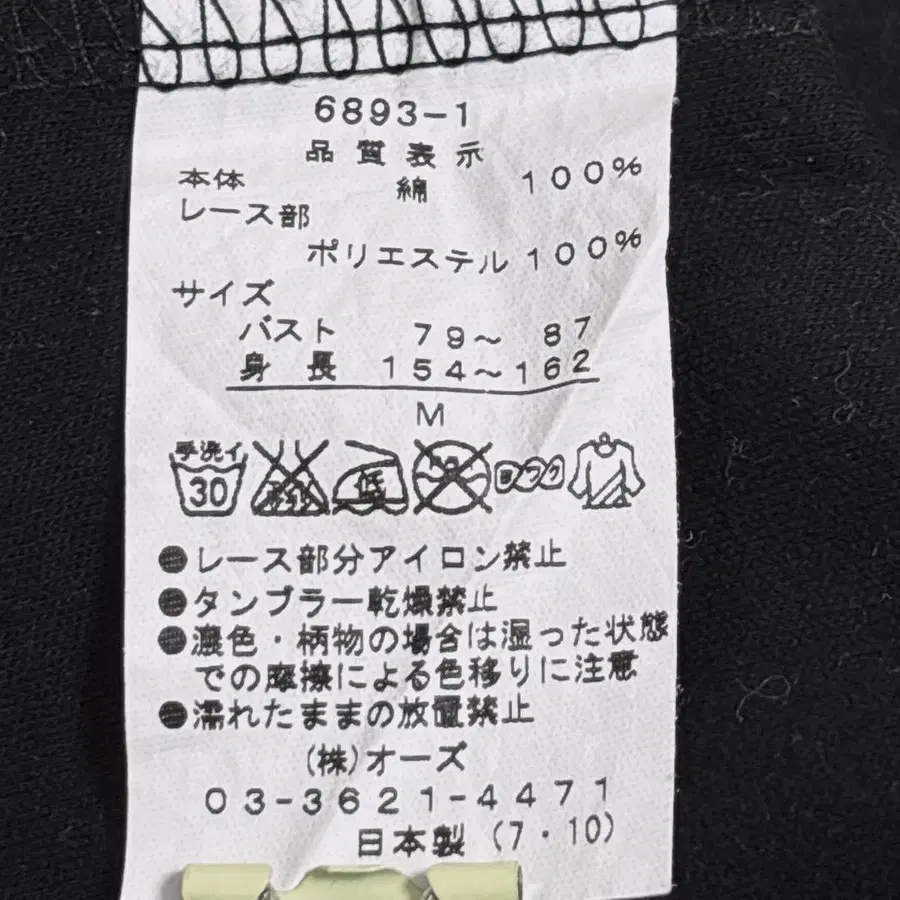 6893-1
品質表示
本体 綿 100%
レース部
ポリエステル 100%
サイズ
バスト 79~ 87
身長 154~162
M
手洗イ
30
低
●レース部分アイロン禁止
●タンブラー乾燥禁止
●濃色・柄物の場合は湿った状態
での摩擦による色移りに注意
●濡れたままの放置禁止
(株)オーズ
03-3621-4471
日本製 (7・10)